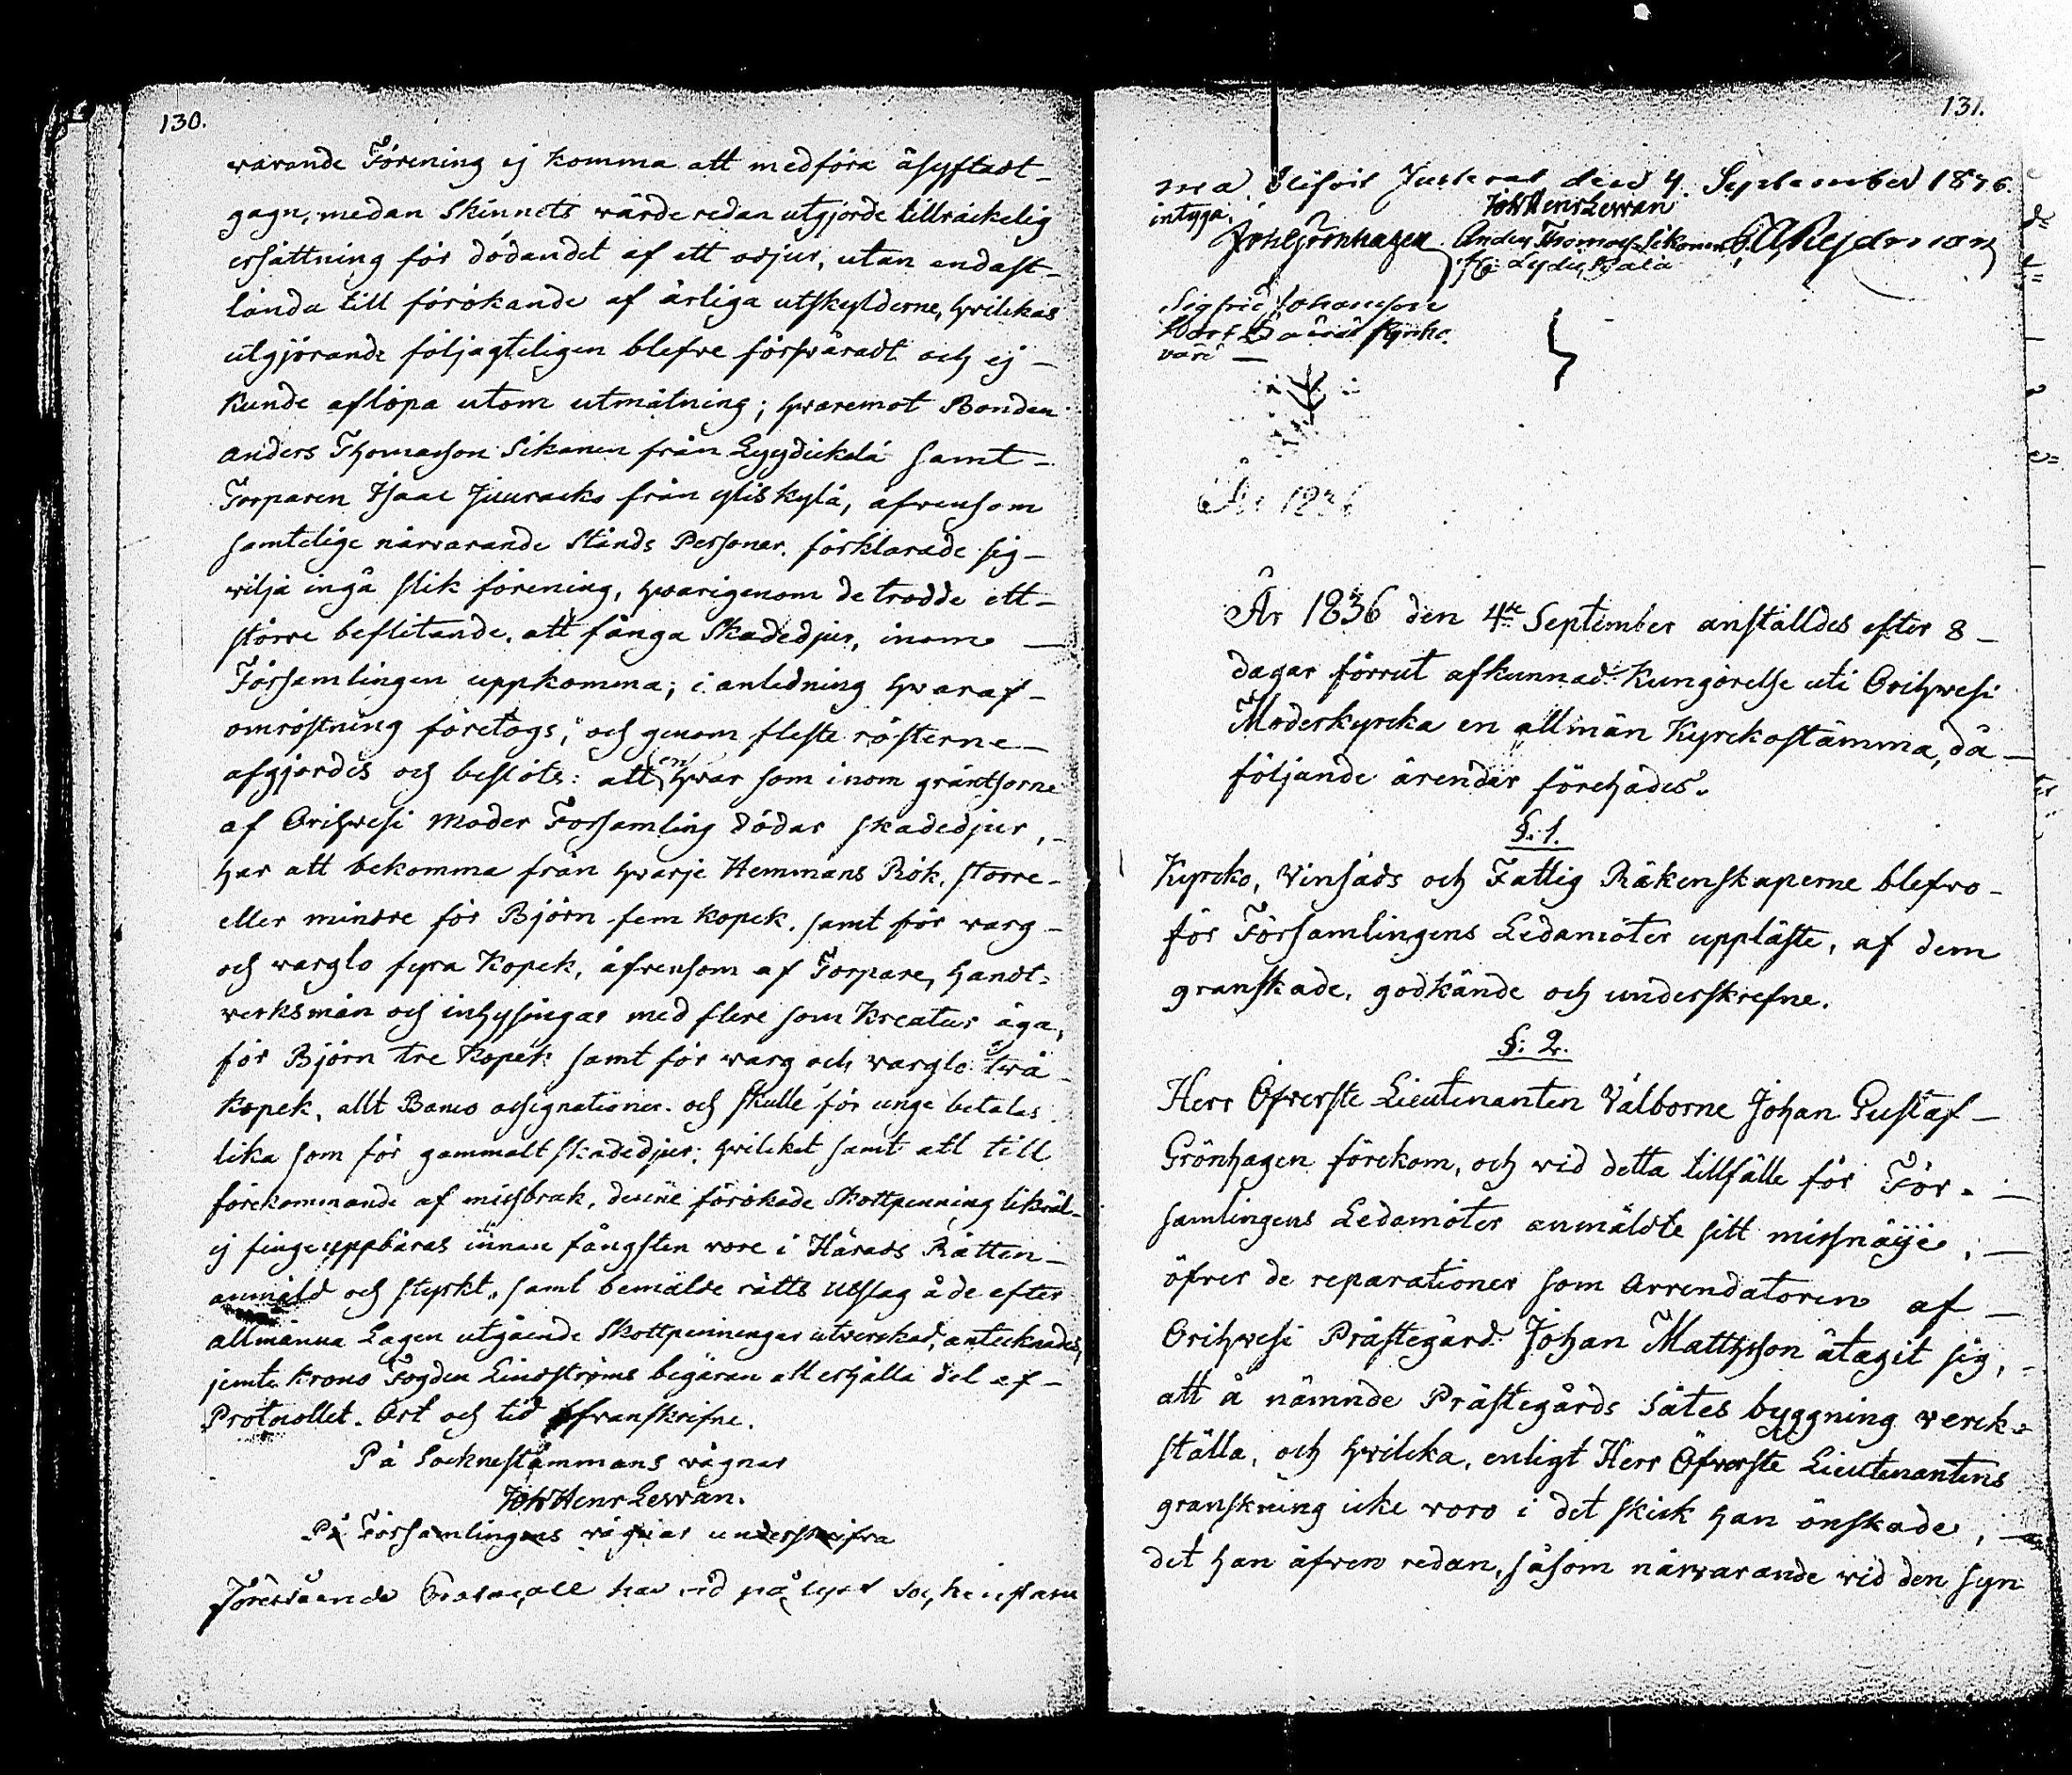 130.
warande Förening ej komma att medföra åsyftadt
gagn, medan skinnets wärde redan utgjorde tillräckelig
ersättning för dödandet af ett odjur, utan endast
lända till förökande af årliga utskylderne, hwilckas
utgjörande följagteligen blefve förswåradt och ej
kunde aflöpa utom utmätning; hwaremot Bonden
Anders Thomasson Sikanen från Lyydickälä samt
Torparen Isaac Juuracko från yliskylä, äfvensom
samtelige närwarande Stånds Personer, förklarade sig
wilja ingå slik förening, hwarigenom de trodde ett
större beflitande, att fånga Skadedjur, inom
Församlingen uppkomma; i anledning hwaraf
omröstning företogs, och genom fleste rösterne
afgjordes och beslöts: att en hwar som inom gräntsorne
af Orihwesi Moder Församling dödar skadedjur,
har att bekomma från hwarje Hemmans Rök, större
eller mindre för Björn fem kopek, samt för warg
och warglo fyra Kopek, äfvensom af Torpare, handt=
verksmän och inhysingar med flere som Kreatur äga,
för Björn tre Kopek samt för warg och warglo twå
kopek, allt Banco assignationer. och skulle för unge betalas
lika som för gammalt skadedjur; hwilcket samt att till
förekommande af missbruk, denne förökade Skottpenning likväl
ej finge uppbäras innan fångsten vore i Härads Rätten
anmäld och styrkt, samt bemälde rätts utslag å de efter
allmänna Lagen utgående Skottpenningar utverckad, antecknades,
jemte krono Fogden Lindströms begäran att erhålla del af
Protocollet. Ort och tid ofvanskrifne.
På Socknestämmans vägnar
Joh Henr Lewan.
På Församlingens vägnar underskrifva
Förestående Protocoll har vid pålyst Sockenstäm
131.
ma blifvit Justerat den 4 September 1836.
intyga.
Joh Henr Lewan
Joh G Grönhagen Anders Thomass: Sikanen
fr: Lydickälä
Sigfrid Johansson
År 1836
År 1836 den 4de September anställdes efter 8
dagar förrut afkunnad Kungörelse uti Orihwesi
Moderkyrcka en allmän Kyrckostämma, då
följande ärender förehades.
§. 1.
Kyrcko, Vinsäds och Fattig Räkenskaperne blefvo
för Församlingens Ledamöter uppläste, af dem
granskade, godkände och underskrefne.
§. 2.
Herr Öfverste Lieutenanten Välborne Johan Gustaf
Grönhagen förekom, och wid detta tillfälle för För=
samlingens Ledamöter anmäldte sitt missnöije,
öfver de reparationer som Arrendatoren af
Orihwesi Prästegård Johan Matthsson åtagit sig,
att å nämnde Prästegårds Sätes byggning verck=
ställa, och hwilcka, enligt Herr Öfverste Lieutenantens
granskning icke voro i det skick han önskade,
det han äfven redan, såsom närwarande wid den syn